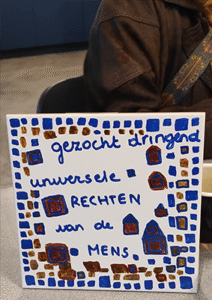 gezocht dringend
unversele
RECHTEN
van de
MENS.